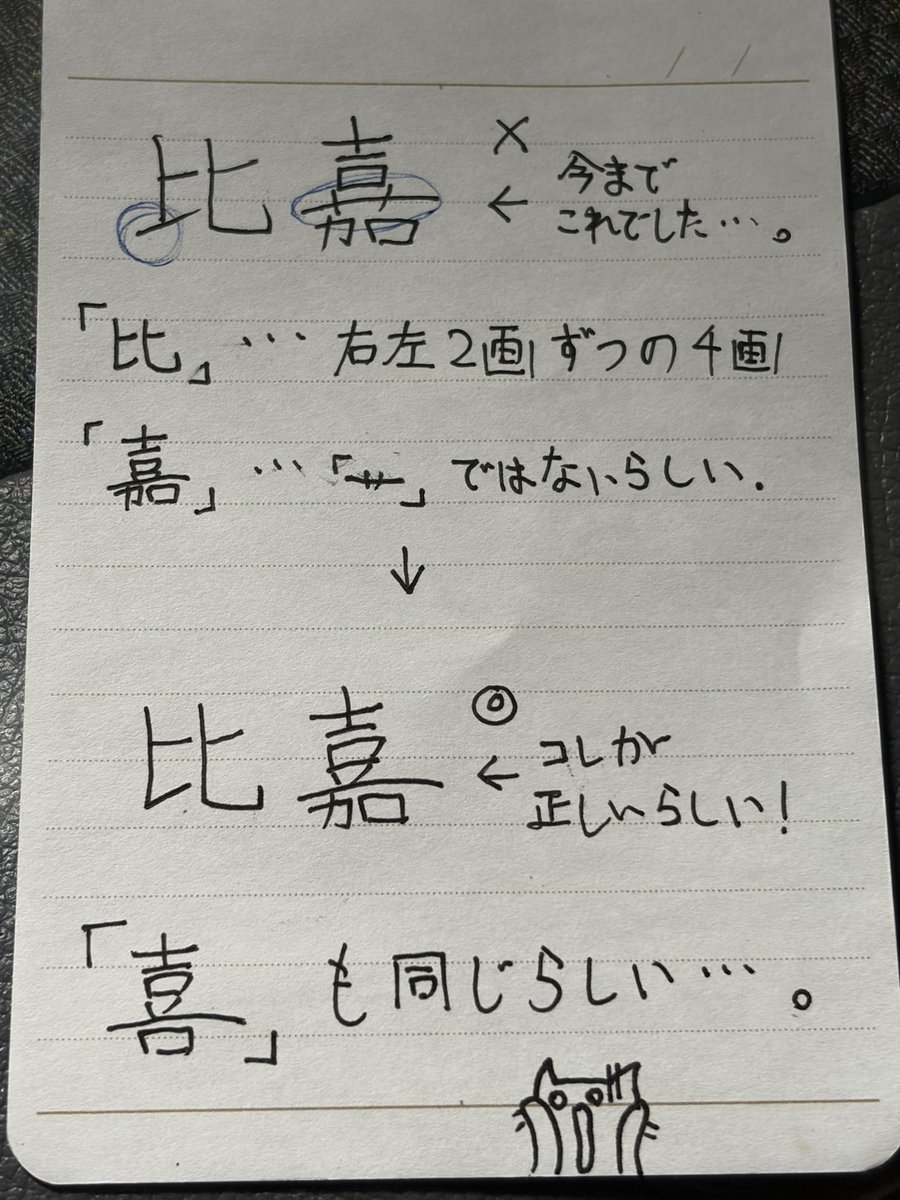 比嘉 × ← 今まで
これでした…。
「比」… 右左2画ずつの4画
「嘉」… 「䒑」ではないらしい.
↓
比嘉 ◎ ← コレが
正しいらしい!
「喜」も同じらしい…。